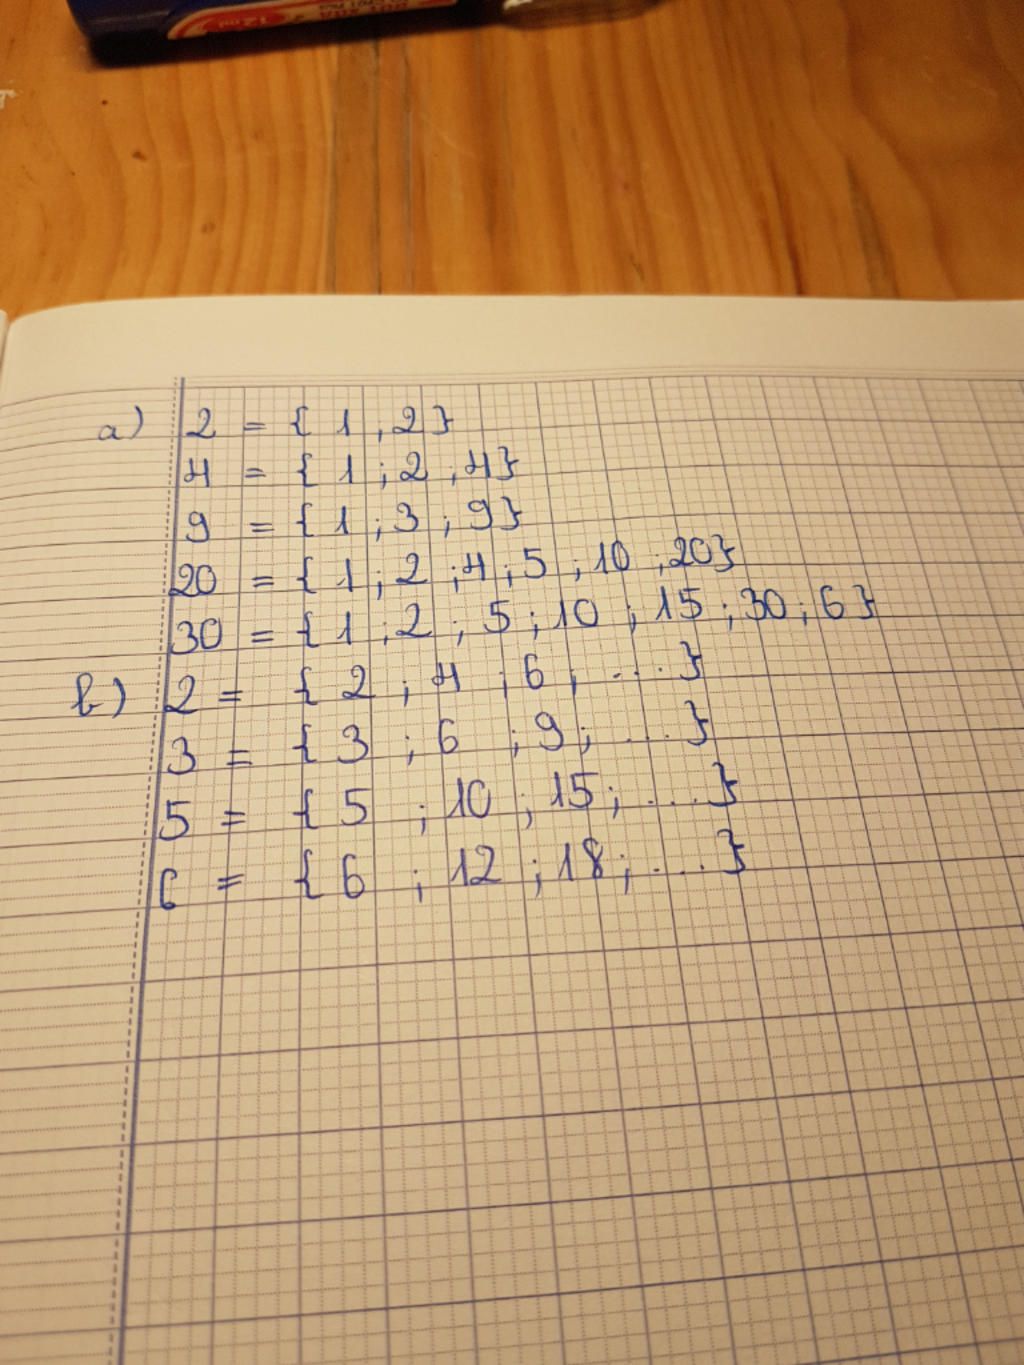 12 ml
a) 2 = { 1 , 2 }
4 = { 1 ; 2 , 4 }
9 = { 1 ; 3 ; 9 }
20 = { 1 ; 2 ; 4 ; 5 ; 10 ; 20 }
30 = { 1 ; 2 ; 5 ; 10 ; 15 ; 30 ; 6 }
b) 2 = { 2 ; 4 ; 6 ; .... }
3 = { 3 ; 6 ; 9 ; .... }
5 = { 5 ; 10 ; 15 ; .... }
6 = { 6 ; 12 ; 18 ; .... }